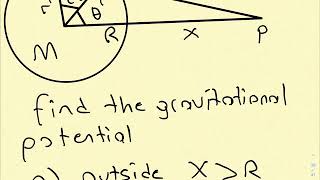 r θ
M R X P
find the gravitational
potential
a) outside X > R